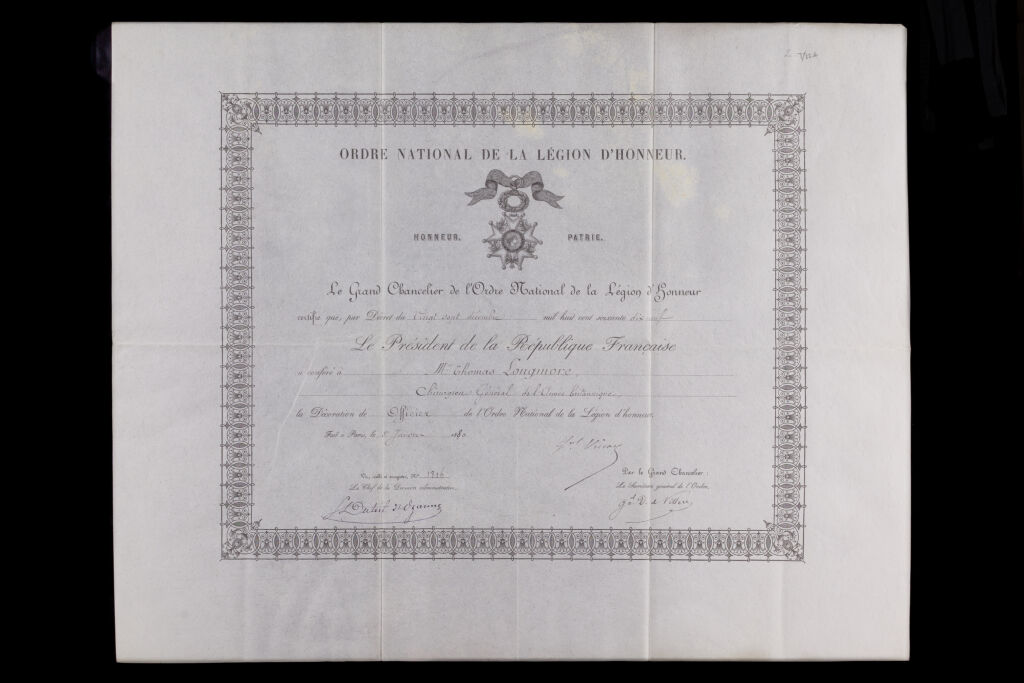 ORDRE NATIONAL DE LA LÉGION D'HONNEUR.
HONNEUR. PATRIE.
Le Grand Chancelier de l'Ordre National de la Légion d'Honneur
certifie que, par Décret du Vingt sept décembre mil huit cent soixante dix neuf
Le Président de la République Française
a conféré à Mr Thomas Longmore,
Chirurgien Général de l'Armée britannique
la Décoration de Officier de l'Ordre National de la Légion d'honneur.
Fait à Paris, le Janvier 1880
Vu, et enregistré, No 1916
Le Chef de la Division administrative,
Par le Grand Chancelier :
Le Secrétaire général de l'Ordre,